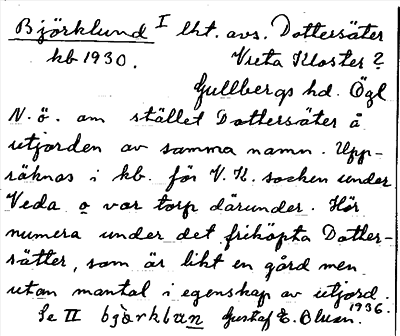 Björklund I lht. avs. Dottersäter
kb 1930. Vreta Kloster 2
Gullbergs hd. Ögl
N.ö. om stället Dottersäter å
utjorden av samma namn. Upp-
räknas i kb. för V. K. socken under
Veda o var torp därunder. Hör
numera under det friköpta Dotter-
sätter, som är likt en gård men
utan mantal i egenskap av utjord.
Se II bjö̀rkluǹ Gustaf E. Bluen. 1936.